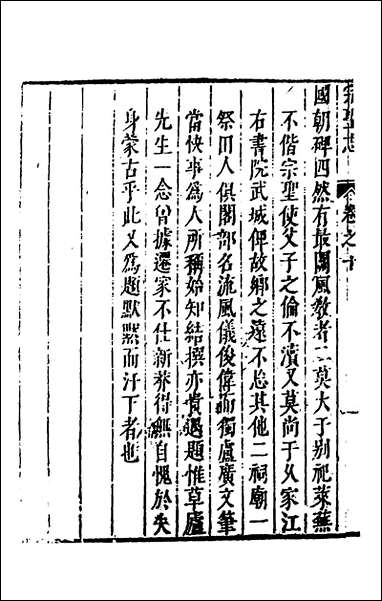 宗聖志 卷之十
國朝碑四然有最關風教者二莫大于别祀萊蕪
不偕宗聖使父子之倫不瀆又莫尚于乆家江
右書院武城俾故鄉之遠不忘其他二祠廟一
祭田人俱閣部名流風儀俊偉而獨盧廣文筆
當快事爲人所稱始知結撰亦貴遇題惟草廬
先生一念曾據遷家不仕新莽得無自愧於失
身蒙古乎此又爲題默默而汗下者也